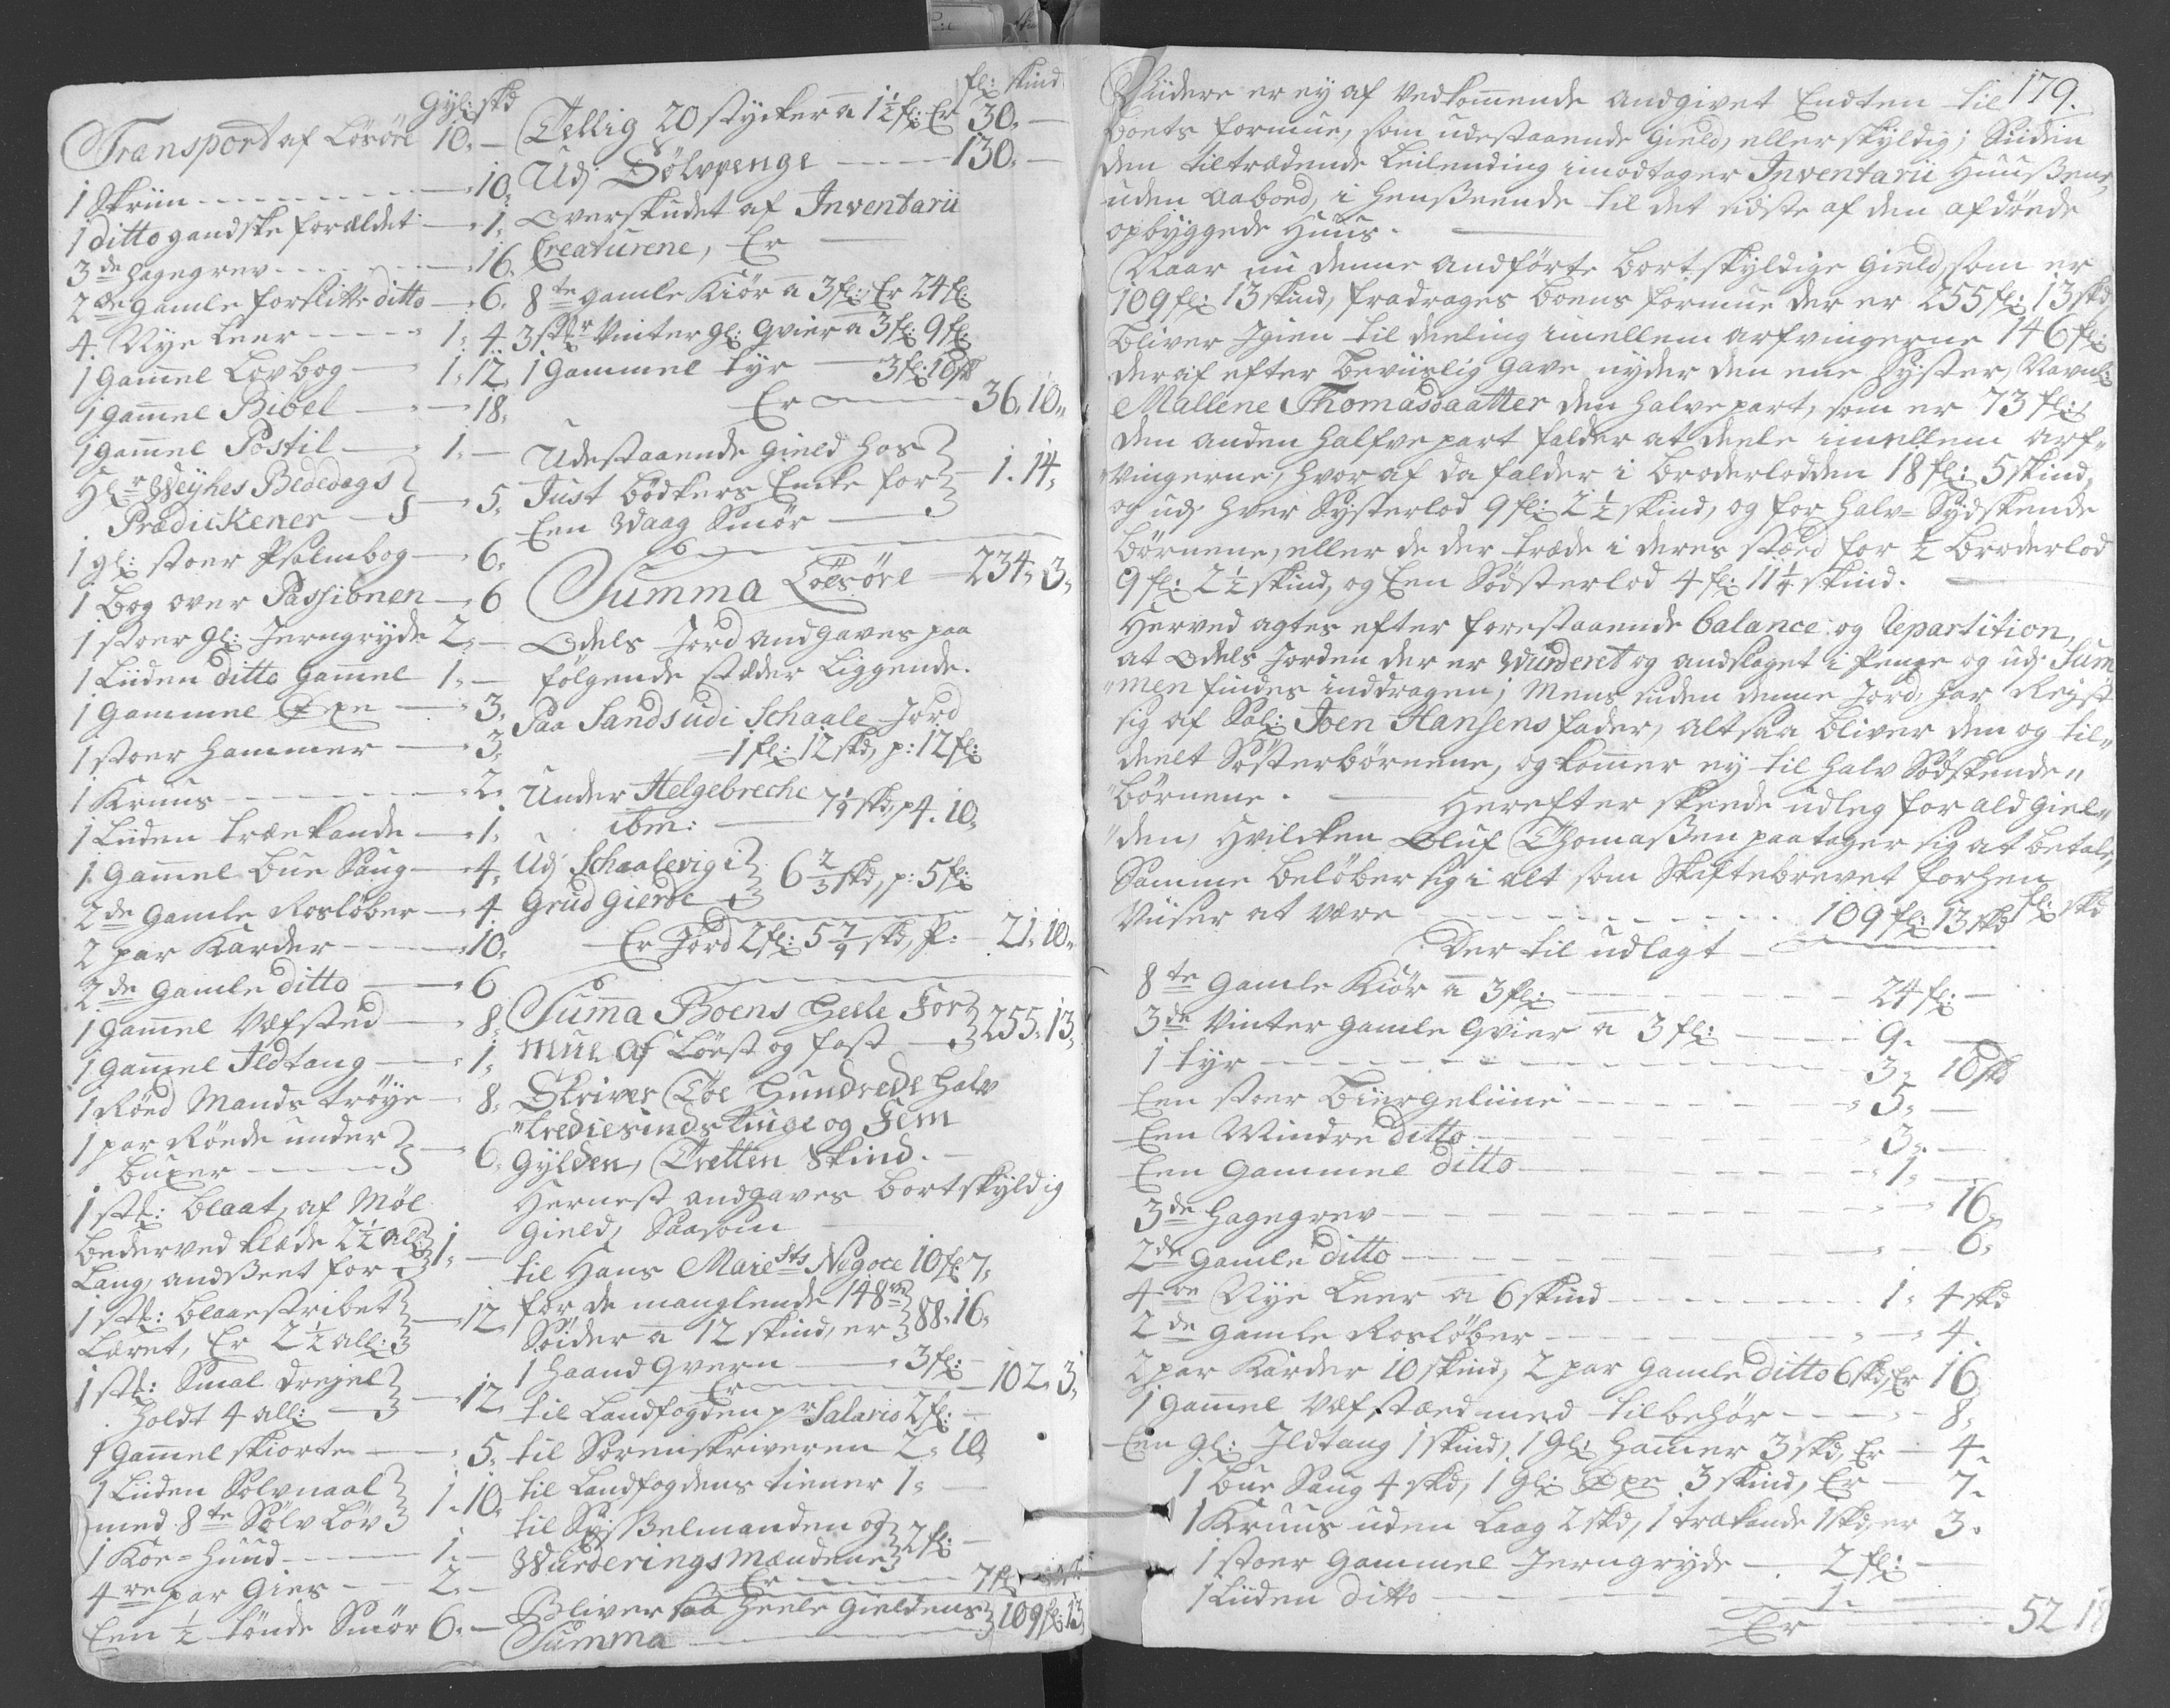 Gyl: skd
Transport af Lösöre 10. —
1 Skriin - - - - - - 10.
1 ditto gandske forældet — 1.
3de Hagegrev - - - - - 16.
2de gamle forslitte ditto — 6.
4. Nye Leer - - - - 1. 4.
1 gammel Lovbog — 1. 12.
1 gammel Bibel — — 18.
1 gammel Postil — 1. —
Hl:r Weyhes Bededags
Prædickener — 5.
1 gl: stoer Psalmbog — 6.
1 Bog over Passionen — 6
1 stoer gl: Jerngryde 2. —
1 Liiden ditto gammel 1. —
1 gammel Öxe — 3.
1 stoer Hammer — 3.
1 Kruus - - - - - 2.
1 Liiden trækande — 1.
1. gammel Bue Saug — 4.
2de gamle Rosløber — 4
2 par Karder — 10.
2de gamle ditto — 6
1 gammel Væfsted — 8.
1 gammel Ildtang — 1.
1 Röed Mands tröye — 8.
1 par Röede under
buxer - - - - 6.
1 stk: blaat, af Möl
bederved klæde 2½ all:
Lang, andsseet for 1. —
1 stk: blaaestribet
Læret, Er 2½ all: — 12
1 stk: Smal Drejel
Holdt 4 all: — 12.
1 gammel skiorte — 5.
1 Liiden Solvnaal
med 8te Sølv Löv 1. 10.
1 Kor=Hund - - - - 1. —
4re par Gies - - 2. —
Een ½ tönde Smör 6. —
fl: skind
Tellig 20 stycker a 1½ fl: Er 30. —
Udj Sölvpenge — 130. —
Overskudet af Inventarii
Creaturene, Er —
8te gamle Kiör a 3 fl: Er 24 fl:
3 stkr Vinter gl: Qvier a 3 fl: 9 fl:
1 gammel tyr — 3 fl: 10 skd
Er — 36. 10.
Udestaaende Gield hos
Just Bödkers Encke for
Een Waag Smör — 1. 14.
Summa Löesöre — 234. 3.
Odels Jord andgaves paa
fölgende stæder Liggende.
Paa Sands udi Schaale Jord
1 fl: 12 skd, p: 12 fl:
Under Helgebreche
ibm: — 7 1/9 skd, p 4. 10.
Udj Schaalevig i
Grud gierde 6 2/3 skd, p: 5 fl:
Er Jord 2 fl: 5 7/9 skd, P: - 21. 10.
Summa Boens Heele For
mue af Löest og fast — 255. 13.
Skriver Toe Hundrede halv
trediesinds tiuge og Fem
Gylden, Tretten Skind. —
Hernest andgaves bortskyldig
Gield, Saasom
til Hans Maiests Negoce 10 fl 7.
for de manglende 148ve
Söider a 12 skind, er 88. 16.
1 haand Qvern — 3 fl: —
Er — 102. 3.
til Landfogden pr Salario 2 fl: —
til Sorenskriveren 2. 10
til Landfogdens tiener 1. —
til Sysselmanden og
Wurderingsmændene 2 fl: —
Er — 7 fl
Bliver saa Heele Gieldens
Summa — 109 fl: 13
179.
Viidere er ey af Vedkommende andgivet Endten til
boets formue, som udestaaende Gield, eller skyldig; Siiden
den tiltrædende Leilending imodtager Inventarii Huussene,
uden Aaboed, i Henseende til det sidste af den afdöede
opbyggede Huus.
Naar nu denne andförte bortskyldige Gield, som er
109 fl: 13 skind, fradrages boens formue der er 255 fl: 13 skd,
bliver Igien til deeling imellem arfvingerne 146 fl:
deraf efter beviislig gave nyder den ene Syster, Navnl:
Mallene Thomasdaatter den halve part, som er 73 fl:
den anden halfve part falder at deele imellem arf„
vingerne, hvoraf da falder i broderlodden 18 fl: 5 skind,
og udj hver Systerlod 9 fl: 2½ skind, og for halv= Sydskende
börnene, eller de der træde i deres stæd for ½ broderlod
9 fl: 2½ skind, og Een Södsterlod 4 fl: 11¼ skind.
Herved agtes efter forestaaende balance og Repartition,
at Odels Jorden der er Wurderet og andslaget i Penge og udj Sum
„men findes inddragen; Mens siden denne Jord har Reyst
sig af Sal: Joen Hansens fader, altsaa bliver den og til„
deelt Sösterbörnene, og kommer ey til halv Södskende„
börnene. — Herefter skeede udleg for ald Giel„
„den, Hvilcken Oluf Thomassen paatager sig at betale,
Samme belöber sig i alt som Skiftebrevet forhen
Viiser at være - - - - 109 fl: 13 skd
fl: skd
Der til udlagt —
8te gamle Kiör a 3 fl: — 24 fl: —
3de Vinter gamle Qvier a 3 fl: - - - 9. —
1 tyr - - - - - - 3. 10 skd
Een stoer Biergeliine - - - - 5. —
Een Mindre ditto - - - - 3. —
Een gammel ditto - - - - 1. —
3de Hagegrev - - - - 16.
2de gamle ditto - - - - 6.
4re Nye Leer a 6 skind - - - - 1. 4 skd
2de gamle Rosløber - - - - 4.
2 par Karder 10 skind, 2 par gamle ditto 6 skd, Er 16.
1 gammel Væfstæd med tilbehör - - - 8.
Een gl: Ildtang 1 skind, 1 gl: Hammer 3 skd, Er — 4.
1 Bue Saug 4 skd, 1 gl: Öxe 3 skind, Er — 7.
1 Kruus uden Laag 2 skd, 1 trækande 1 skd, er 3.
1 stoer gammel Jerngryde — 2 fl: —
1 Liiden ditto — 1. —
Er — 52